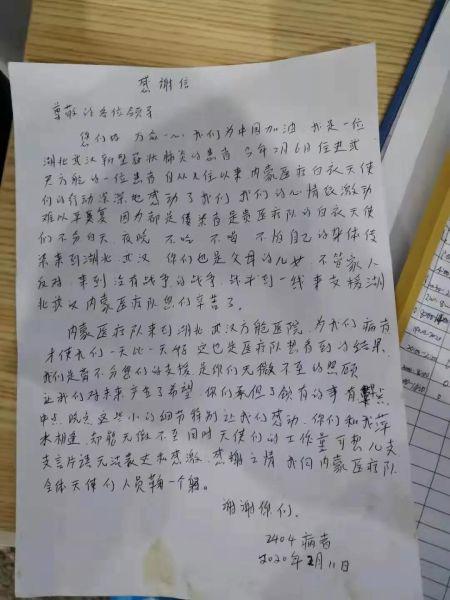 感谢信
尊敬的各位领导
您们好 万众一心 我们为中国加油 我是一位
湖北武汉新型冠状肺炎的患者 今年2月6日住武
汉方舱的一位患者 自从入住以来内蒙医疗白衣天使
们的行动深深地感动了我们 我们的心情很激动
难以平复 因为都是传染者是贵医疗队的白衣天使
们不分白天、夜晚 不吃 不喝 不怕自己的身体传
染来到湖北 武汉 你们也是父母的儿女 不管家人
反对,来到没有战争的战争,战斗到一线来支援湖
北武汉内蒙医疗队您们辛苦了。
内蒙医疗队来到湖北 武汉方舱医院,为我们病者
才使我们一天比一天好 这也是医疗队想看到的结果,
我们是离不开您们的支援 是你们无微不至的照顾
让我们对未来产生了希望,你们承担了领有的事有
中点、晚点 这些小的细节特别让我们感动,你们和我萍
水相逢,却能无微不至同时天使们的工作量可想
支言片语无法表达和感激,感谢之情 我向内蒙医疗队
全体天使们人员鞠一个躬。
谢谢你们。
2404 病者
2020年2月11日